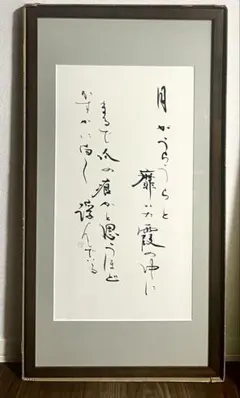 月がうらうらと
靡いた霞の中に
まるで爪の痕かと思うほど
かすかに白く浮んでいる